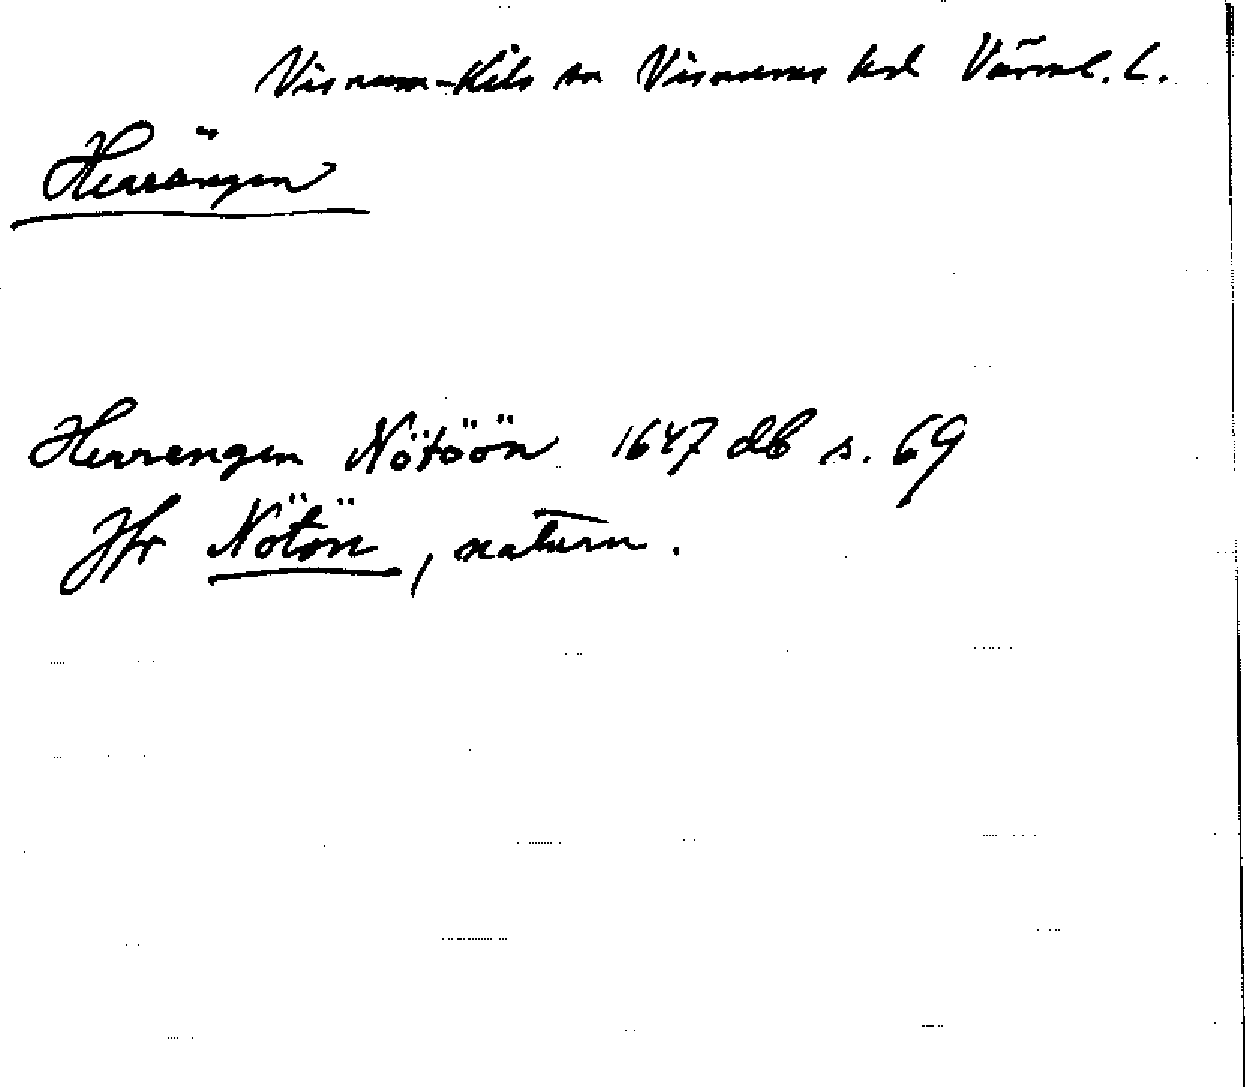 Visnum-Kils sn Visnums hd Värml. L.
Herrängen
Herrengen Nötöön 1647 db s. 69
Jfr Nötön, naturn.